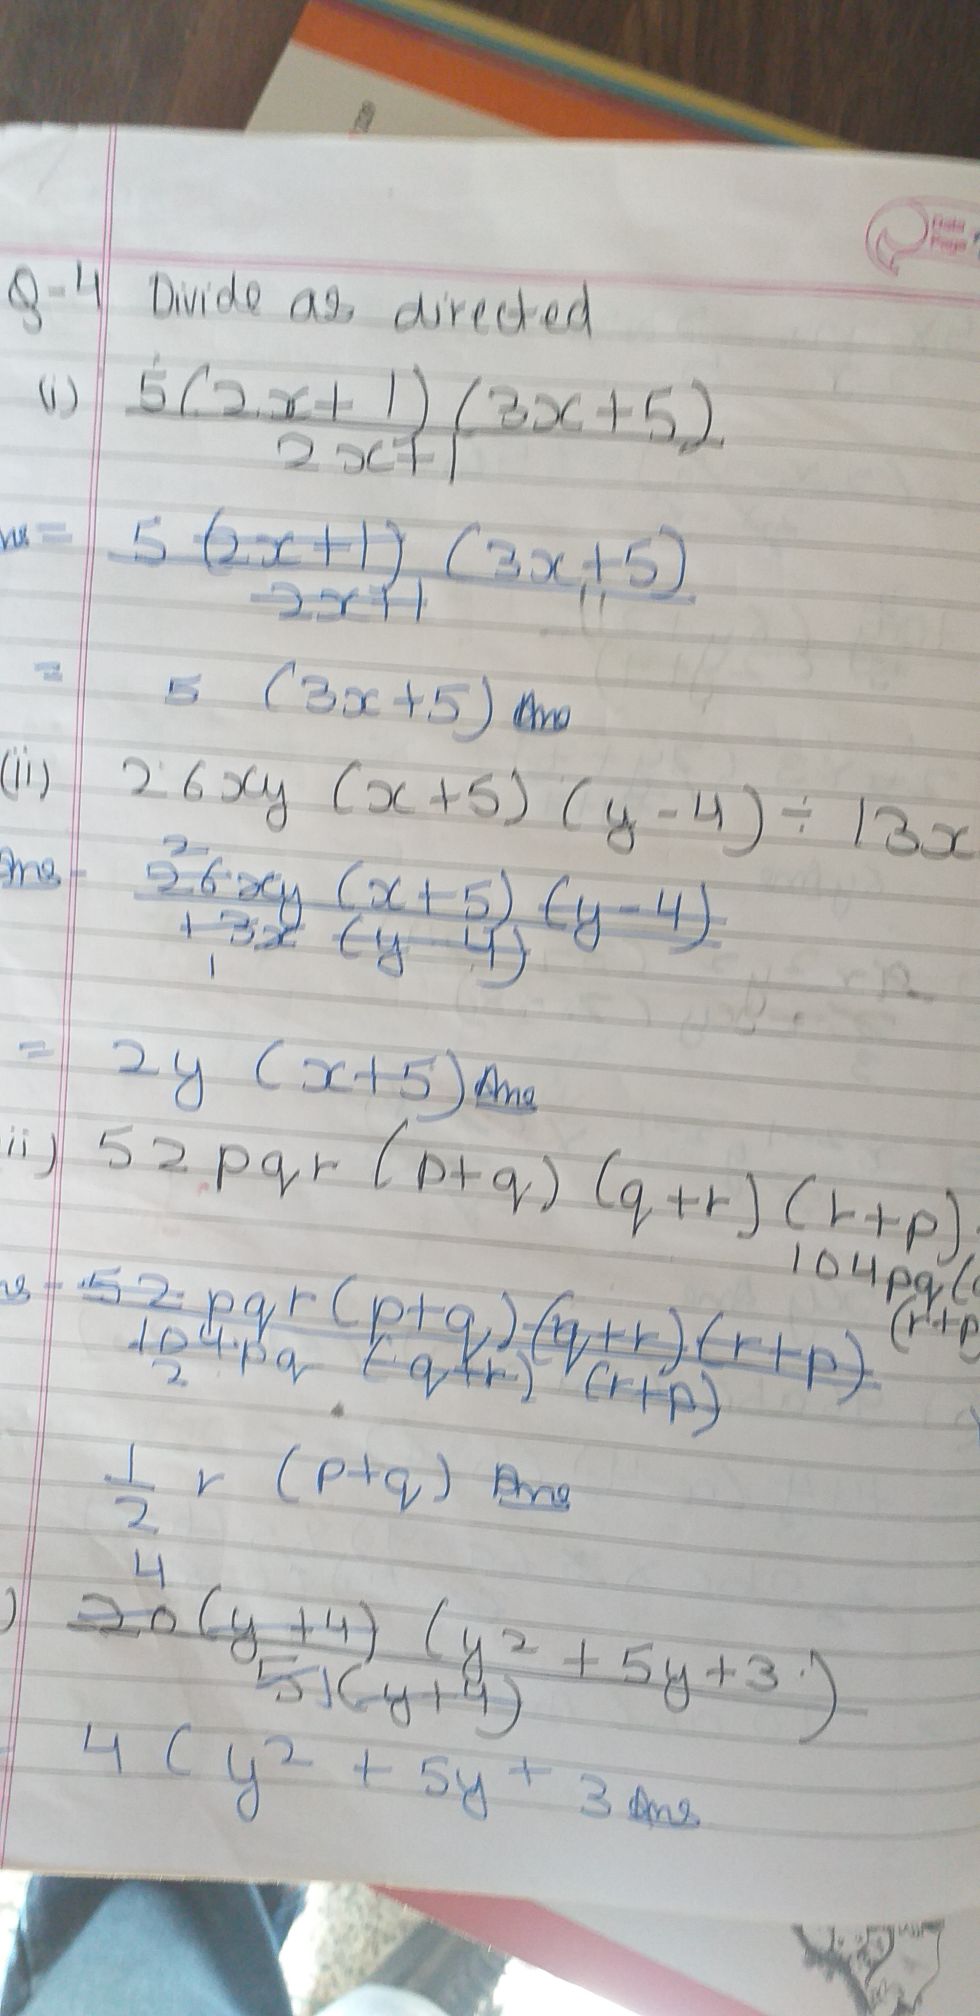 Q-4 Divide as directed
(i) 5(2x+1)(3x+5)
2x+1
= 5(2x+1)(3x+5)
2x+1
= 5 (3x+5) Ans
(ii) 26xy (x+5) (y-4) ÷ 13x
Ans - 2
26xy (x+5) (y-4)
13x (y-4)
1
= 2y (x+5) Ans
ii) 52pqr (p+q) (q+r) (r+p)
104pq(
(r+p
- 52pqr (p+q) (q+r) (r+p)
104pq (q+r) (r+p)
2
1
2 r (p+q) Ans
4
) 20(y+4) (y² + 5y+3)
51(y+4)
4 (y² + 5y + 3 Ans